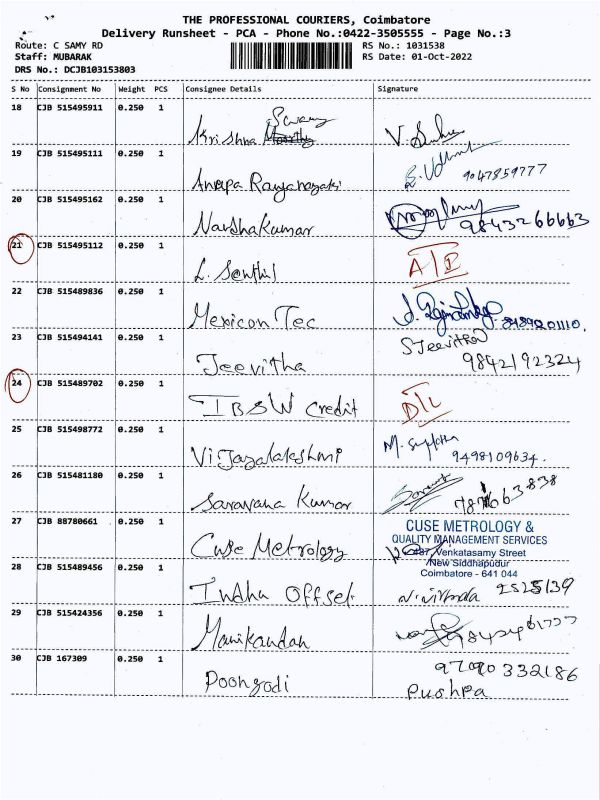 THE PROFESSIONAL COURIERS, Coimbatore
Delivery Runsheet - PCA - Phone No.:0422-3505555 - Page No.:3
Route: C SAMY RD RS No.: 1031538
Staff: MUBARAK RS Date: 01-Oct-2022
DRS No.: DCJB103153803
S No Consignment No Weight PCS Consignee Details Signature
18 CJB 515495911 0.250 1 Krishna Swamy
19 CJB 515495111 0.250 1 Anupa Ranganayaki 9047859777
20 CJB 515495162 0.250 1 Narshakumar 9843266663
21 CJB 515495112 0.250 1 L. Senthil
22 CJB 515489836 0.250 1 Mexicon Tec
23 CJB 515494141 0.250 1 Jeevitha S Jeevitha 9842192324
24 CJB 515489702 0.250 1 IBSW Credit D/L
25 CJB 515498772 0.250 1 Vijayalakshmi 9498109634.
26 CJB 515481180 0.250 1 Saravana Kumar
27 CJB 88780661 0.250 1 Cuse Metrology
CUSE METROLOGY &
QUALITY MANAGEMENT SERVICES
Venkatasamy Street
New Siddhapudur
Coimbatore - 641 044
28 CJB 515489456 0.250 1 Indhu Offset. 2525139
29 CJB 515424356 0.250 1 Manikandan
30 CJB 167309 0.250 1 Poongodi Pushpa